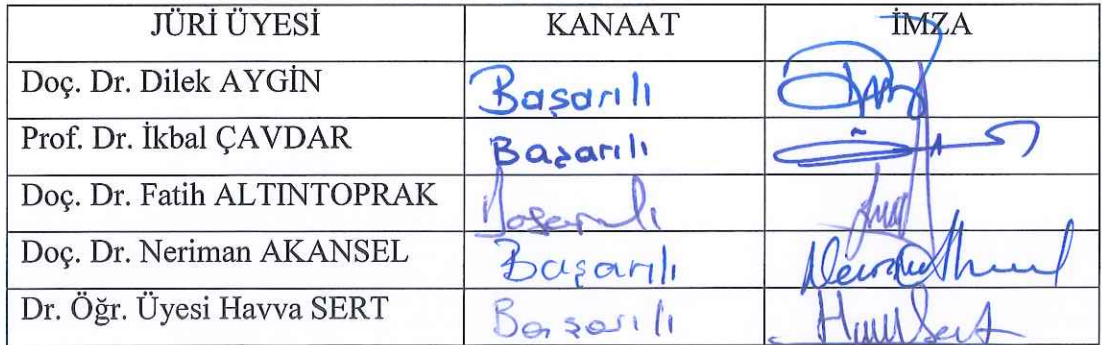 JÜRİ ÜYESİ KANAAT İMZA
Doç. Dr. Dilek AYGİN Başarılı
Prof. Dr. İkbal ÇAVDAR Başarılı
Doç. Dr. Fatih ALTINTOPRAK Başarılı
Doç. Dr. Neriman AKANSEL Başarılı
Dr. Öğr. Üyesi Havva SERT Başarılı